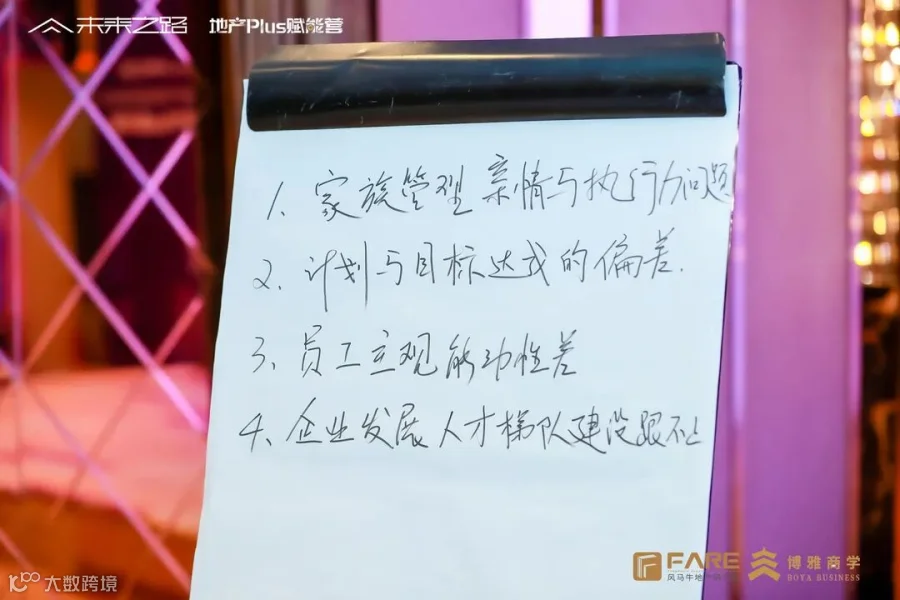 未来之路 地产Plus赋能营
1、家族管理亲情与执行力问题
2、计划与目标达成的偏差.
3、员工主观能动性差
4、企业发展人才梯队建设跟不上
FARE 博雅商学
风马牛地产 BOYA BUSINESS
大数跨境